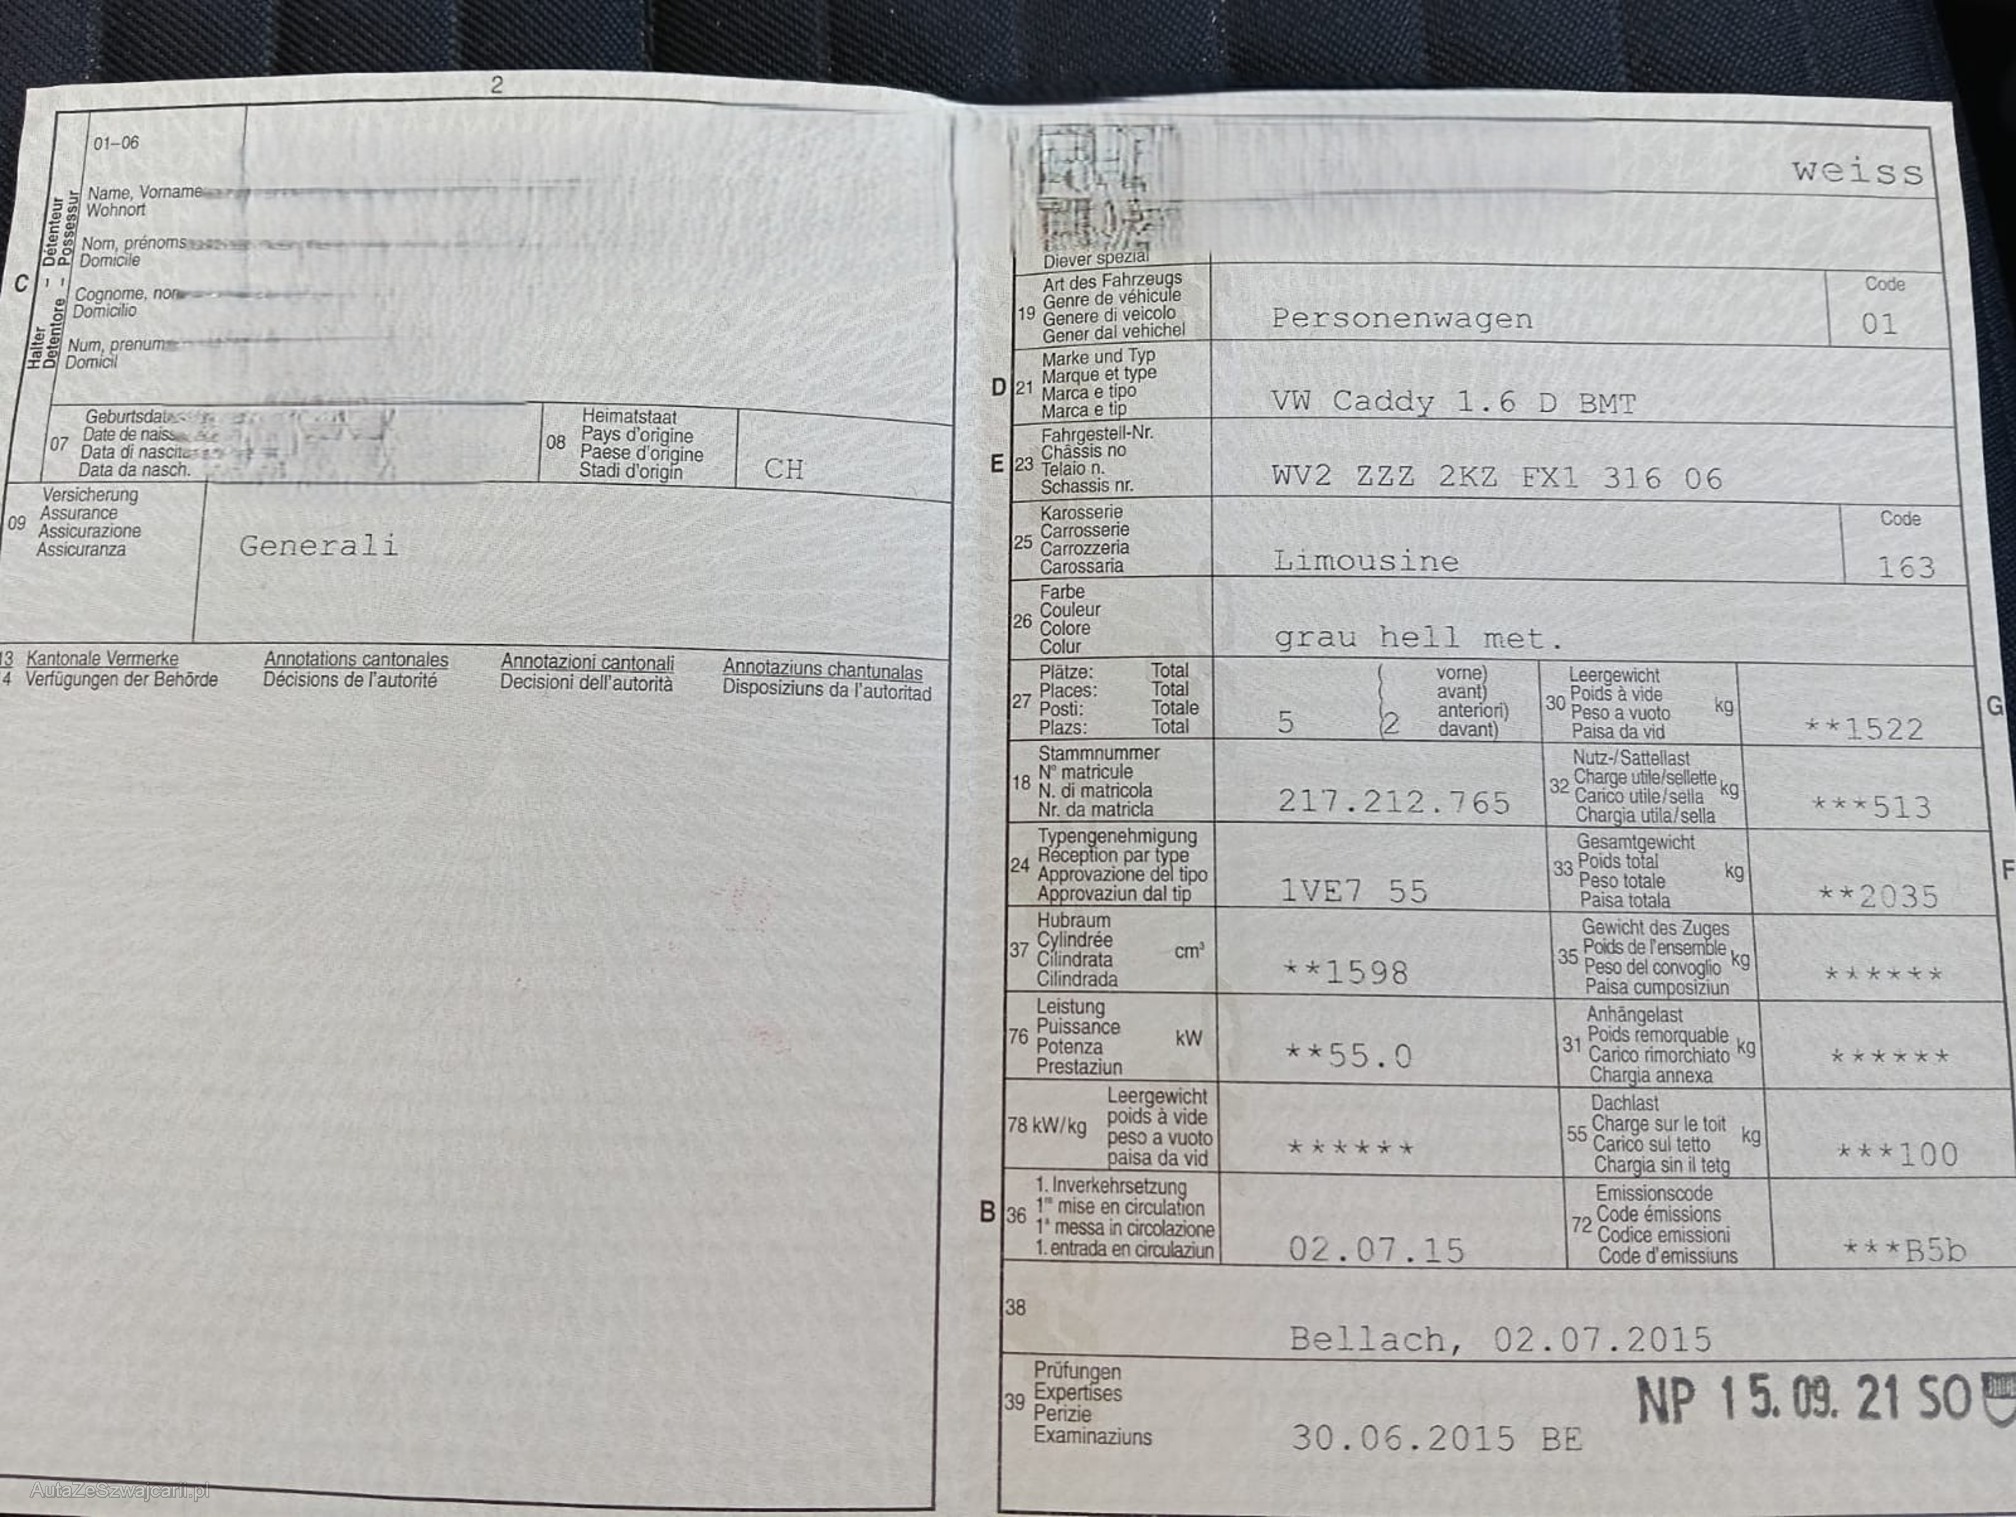 2
01–06
Name, Vorname
Wohnort
Nom, prénoms
Domicile
Cognome, nom
Domicilio
Num, prenum
Domicil
C
Halter – Détenteur
Detentore – Possessur
07
Geburtsdat
Date de naiss
Data di nascita
Data da nasch.
08
Heimatstaat
Pays d'origine
Paese d'origine
Stadi d'origin
CH
09
Versicherung
Assurance
Assicurazione
Assicuranza
Generali
13 Kantonale Vermerke Annotations cantonales Annotazioni cantonali Annotaziuns chantunalas
4 Verfügungen der Behörde Décisions de l'autorité Decisioni dell'autorità Disposiziuns da l'autoritad
weiss
Diever spezial
19
Art des Fahrzeugs
Genre de véhicule
Genere di veicolo
Gener dal vehichel
Personenwagen
Code
01
D 21
Marke und Typ
Marque et type
Marca e tipo
Marca e tip
VW Caddy 1.6 D BMT
E 23
Fahrgestell-Nr.
Châssis no
Telaio n.
Schassis nr.
WV2 ZZZ 2KZ FX1 316 06
25
Karosserie
Carrosserie
Carrozzeria
Carossaria
Limousine
Code
163
26
Farbe
Couleur
Colore
Colur
grau hell met.
27
Plätze: Total ( vorne)
Places: Total avant)
Posti: Totale anteriori)
Plazs: Total davant)
5 2
30
Leergewicht
Poids à vide
Peso a vuoto
Paisa da vid
kg
**1522
G
18
Stammnummer
N° matricule
N. di matricola
Nr. da matricla
217.212.765
32
Nutz-/Sattellast
Charge utile/sellette
Carico utile/sella
Chargia utila/sella
kg
***513
24
Typengenehmigung
Réception par type
Approvazione del tipo
Approvaziun dal tip
1VE7 55
33
Gesamtgewicht
Poids total
Peso totale
Paisa totala
kg
**2035
F
37
Hubraum
Cylindrée
Cilindrata
Cilindrada
cm³
**1598
35
Gewicht des Zuges
Poids de l'ensemble
Peso del convoglio
Paisa cumposiziun
kg
******
76
Leistung
Puissance
Potenza
Prestaziun
kW
**55.0
31
Anhängelast
Poids remorquable
Carico rimorchiato
Chargia annexa
kg
******
78 kW/kg
Leergewicht
poids à vide
peso a vuoto
paisa da vid
******
55
Dachlast
Charge sur le toit
Carico sul tetto
Chargia sin il tetg
kg
***100
B 36
1. Inverkehrsetzung
1re mise en circulation
1a messa in circolazione
1. entrada en circulaziun
02.07.15
72
Emissionscode
Code émissions
Codice emissioni
Code d'emissiuns
***B5b
38
Bellach, 02.07.2015
39
Prüfungen
Expertises
Perizie
Examinaziuns
30.06.2015 BE
NP 15.09.21 SO
AutaZeSzwajcarii.pl